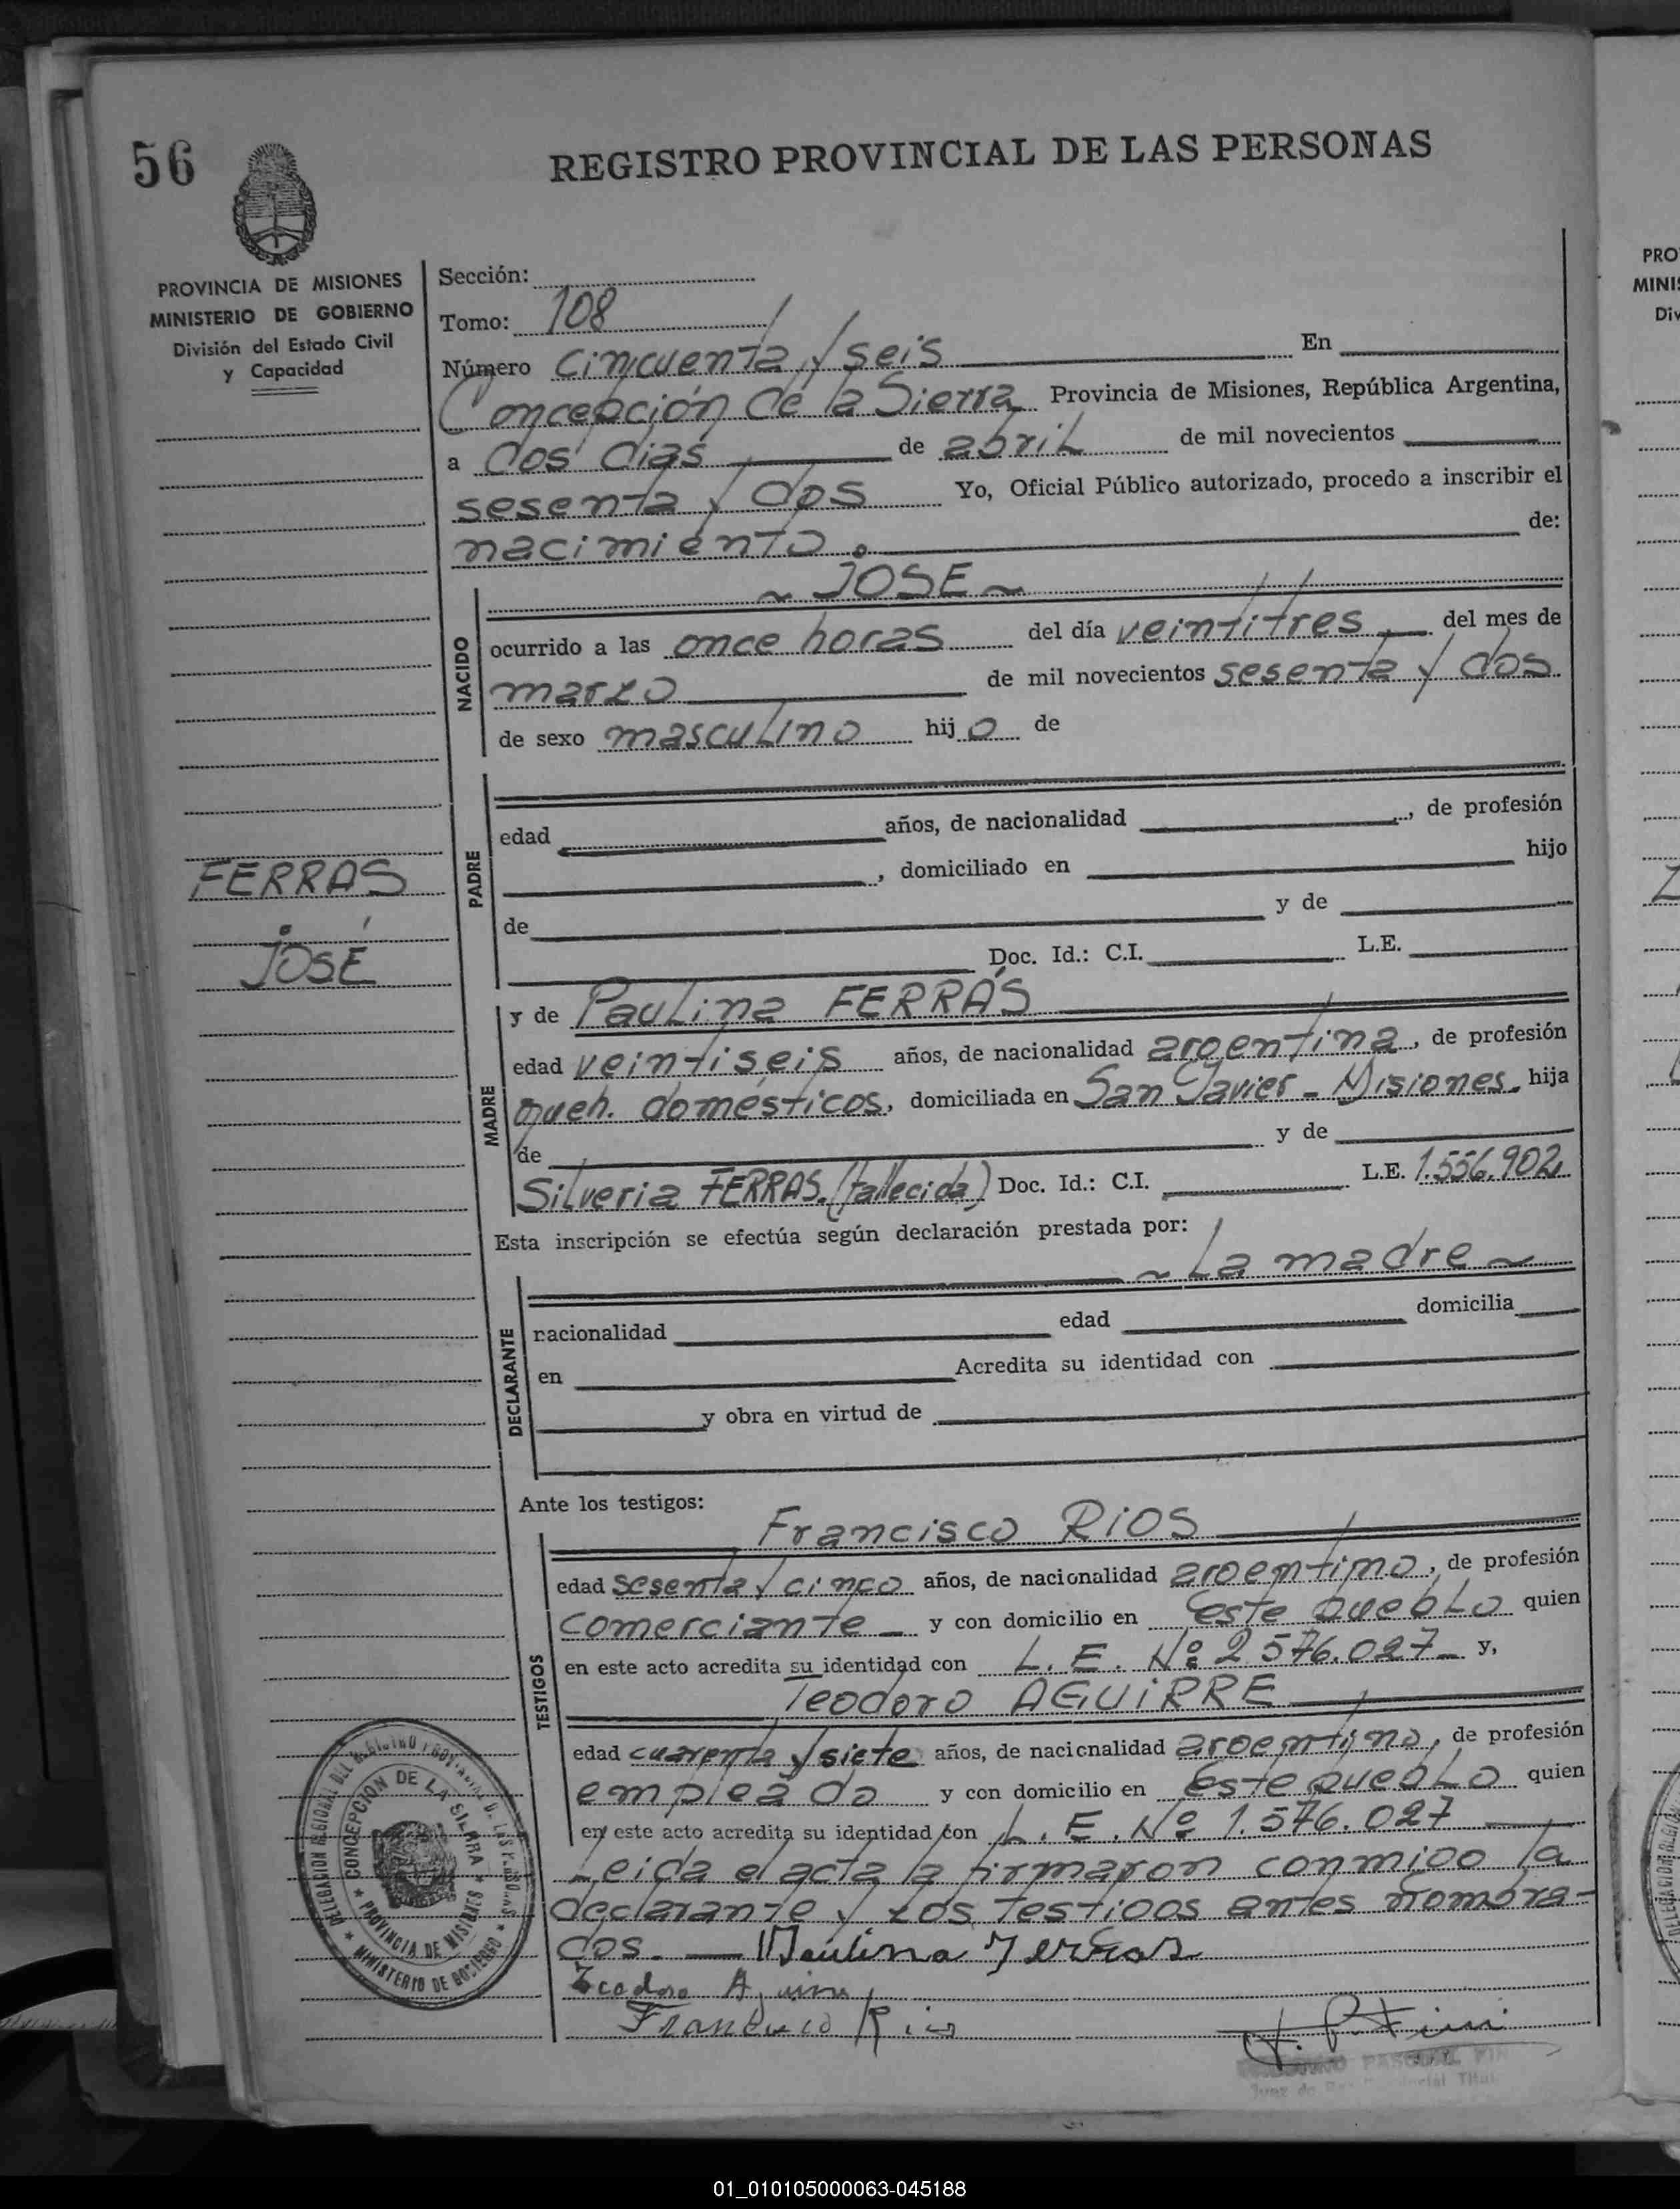 56
REGISTRO PROVINCIAL DE LAS PERSONAS
PROVINCIA DE MISIONES
MINISTERIO DE GOBIERNO
División del Estado Civil
y Capacidad
Sección:
Tomo: 108
Número cincuenta y seis En
Concepción de la Sierra Provincia de Misiones, República Argentina,
a dos días de abril de mil novecientos
sesenta y dos Yo, Oficial Público autorizado, procedo a inscribir el
nacimiento. de:
~ JOSE ~
NACIDO
ocurrido a las once horas del día veintitres del mes de
marzo de mil novecientos sesenta y dos
de sexo masculino hijo de
PADRE
edad años, de nacionalidad , de profesión
, domiciliado en hijo
de y de
Doc. Id.: C.I. L.E.
FERRAS
JOSÉ
MADRE
y de Paulina FERRÁS
edad veintiséis años, de nacionalidad argentina, de profesión
queh. domésticos, domiciliada en San Javier - Misiones. hija
de y de
Silveria FERRAS. (fallecida) Doc. Id.: C.I. L.E. 1.556.902
Esta inscripción se efectúa según declaración prestada por:
~ La madre ~
DECLARANTE
nacionalidad edad domicilia
en Acredita su identidad con
y obra en virtud de
Ante los testigos:
Francisco RIOS
TESTIGOS
edad sesenta y cinco años, de nacionalidad argentino, de profesión
comerciante - y con domicilio en este pueblo quien
en este acto acredita su identidad con L. E. Nº 2.576.027 - y,
Teodoro AGUIRRE
edad cuarenta y siete años, de nacionalidad argentino, de profesión
empleado y con domicilio en este pueblo quien
en este acto acredita su identidad con L. E. Nº 1.576.027
Leida el acta la firmaron conmigo la
declarante y los testigos antes nombra-
dos. — Paulina Ferras
Teodoro Aguirre
Francisco Rios
DELEGACION REGIONAL DEL REGISTRO
CONCEPCION DE LA SIERRA
PROVINCIA DE MISIONES
MINISTERIO DE GOBIERNO
PASCUAL
Juez de
PRO
MINIS
Div
01_010105000063-045188